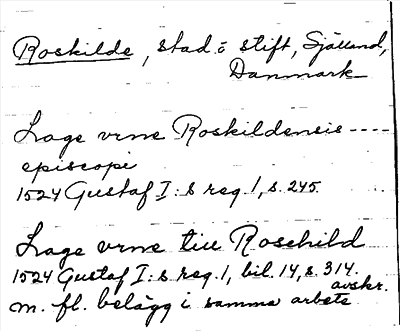 Roskilde, stad o stift, Själland,
Danmark
Lage vrne Roskildensis ----
episcopi
1524 Gustaf I:s reg. 1, s. 245.
Lage vrne till Roschild
1524 Gustaf I:s reg. 1, bil. 14, s. 314.
avskr.
m. fl. belägg i samma arbete